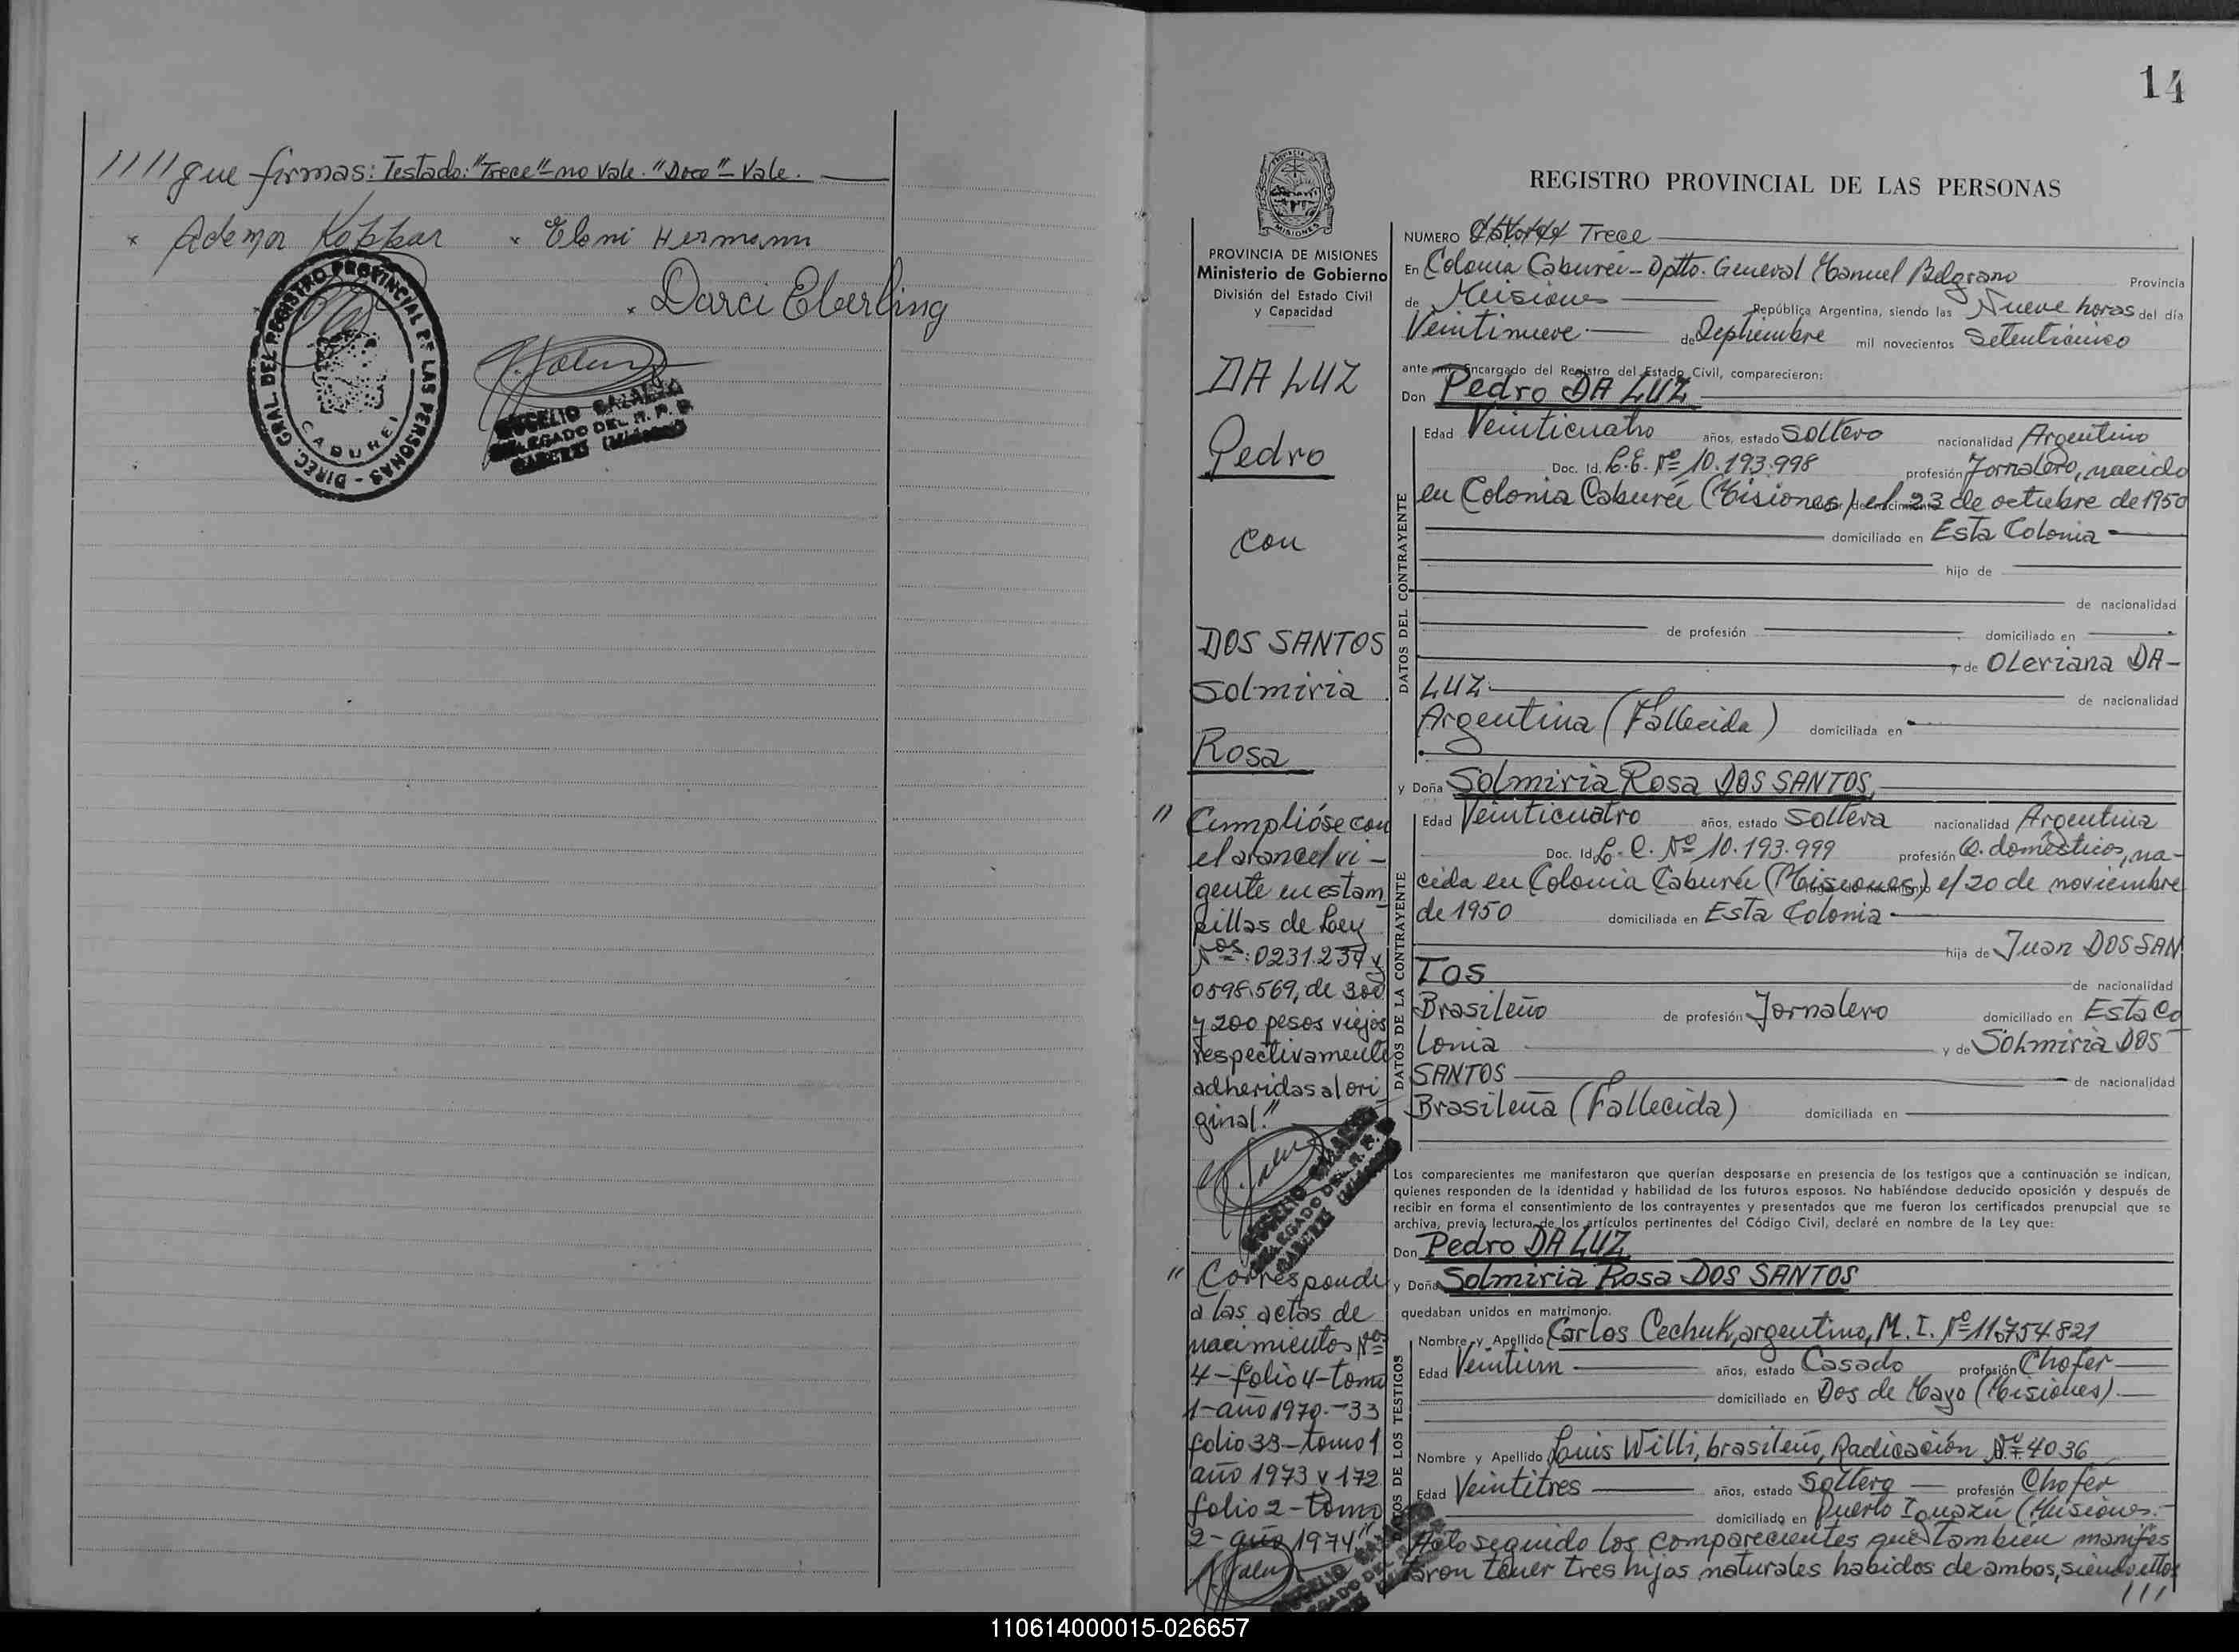 //// que firmas: Testado: "Trece" - no vale. "Doce" - Vale.
x Ademar Kobbar x Eleni Hermann
x Darci Eberling
DIREC. GRAL. DEL REGISTRO PROVINCIAL DE LAS PERSONAS
CABUREI
DELEGADO DEL R. P. P.
(Misiones)
14
REGISTRO PROVINCIAL DE LAS PERSONAS
PROVINCIA DE MISIONES
Ministerio de Gobierno
División del Estado Civil
y Capacidad
DA LUZ
Pedro
con
DOS SANTOS
Solmiria
Rosa
" Cumplióse con
el arancel vi-
gente en estam
pillas de Ley
Nos: 0231.237 y
0598.569, de 300
y 200 pesos viejos
respectivamente
adheridas al ori
ginal."
" Corresponde
a las actas de
nacimientos Nos
4 - folio 4 - tomo
1 - año 1970. - 33
folio 33 - tomo 1
año 1973 y 172
folio 2 - tomo
2 - año 1974"
NUMERO Catorce Trece
En Colonia Caburei - Dptto. General Manuel Belgrano Provincia
de Misiones República Argentina, siendo las Nueve horas del día
Veintinueve de Septiembre mil novecientos Setenticinco
ante mí Encargado del Registro del Estado Civil, comparecieron:
Don Pedro DA LUZ
DATOS DEL CONTRAYENTE
Edad Veinticuatro años, estado Soltero nacionalidad Argentino
Doc. Id. L.E. Nº 10.193.998 profesión Jornalero, nacido
en Colonia Caburei (Misiones) el 23 de octubre de 1950
domiciliado en Esta Colonia
hijo de
de nacionalidad
de profesión domiciliado en
y de Oleriana DA-
LUZ de nacionalidad
Argentina (Fallecida) domiciliada en
y Doña Solmiria Rosa DOS SANTOS,
DATOS DE LA CONTRAYENTE
Edad Veinticuatro años, estado Soltera nacionalidad Argentina
Doc. Id. L. C. Nº 10.193.999 profesión Q. domésticos, na-
cida en Colonia Caburei (Misiones) el 20 de noviembre
de 1950 domiciliada en Esta Colonia
hija de Juan DOS SAN
TOS de nacionalidad
Brasileño de profesión Jornalero domiciliado en Esta Co
lonia y de Solmiria DOS
SANTOS de nacionalidad
Brasileña (Fallecida) domiciliada en
Los comparecientes me manifestaron que querían desposarse en presencia de los testigos que a continuación se indican,
quienes responden de la identidad y habilidad de los futuros esposos. No habiéndose deducido oposición y después de
recibir en forma el consentimiento de los contrayentes y presentados que me fueron los certificados prenupcial que se
archiva, previa lectura de los artículos pertinentes del Código Civil, declaré en nombre de la Ley que:
Don Pedro DA LUZ
y Doña Solmiria Rosa DOS SANTOS
quedaban unidos en matrimonio.
DATOS DE LOS TESTIGOS
Nombre y Apellido Carlos Cechuk, argentino, M. I. Nº 11.754.821
Edad Veintiún años, estado Casado profesión Chofer
domiciliado en Dos de Mayo (Misiones).
Nombre y Apellido Luis Willi, brasileño, Radicación Nº 4036
Edad Veintitres años, estado Soltero profesión Chofer
domiciliado en Puerto Iguazú (Misiones.
Acto seguido los comparecientes que tambien manifes
taron tener tres hijos naturales habidos de ambos, siendo ellos
///
110614000015-026657